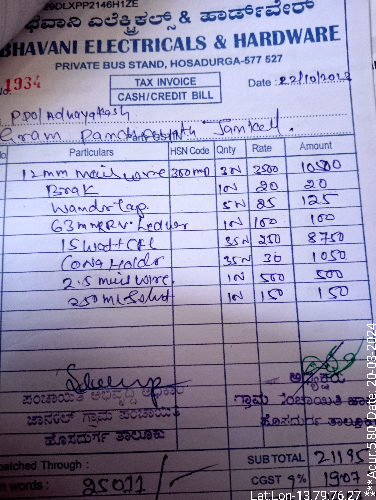 29DLXPP2146H1ZE
ಭವಾನಿ ಎಲೆಕ್ಟ್ರಿಕಲ್ಸ್ & ಹಾರ್ಡ್‌ವೇರ್
BHAVANI ELECTRICALS & HARDWARE
PRIVATE BUS STAND, HOSADURGA-577 527
No. 1934
TAX INVOICE
CASH/CREDIT BILL
Date : 22/10/
PDO/Adhayaksh
Gram Panchayath Jankal.
No Particulars HSN Code Qnty Rate Amount
12mm wire 3N 3500 10500
20 20
5N 25 125
63mm 1N 100 100
15watt CFL 35N 250 8750
Cong Holdr 35N 30 1050
2.5 wire 1N 500 500
250 ml 1N 150 150
ಪಂಚಾಯಿತಿ ಅಭಿವೃದ್ಧಿ ಅಧಿಕಾರಿ
ಜಾನಕಲ್ ಗ್ರಾಮ ಪಂಚಾಯಿತಿ
ಹೊಸದುರ್ಗ ತಾಲೂಕು
ಅಧ್ಯಕ್ಷರು
ಗ್ರಾಮ ಪಂಚಾಯಿತಿ
ಹೊಸದುರ್ಗ ತಾಲೂಕು
patched Through :
n words : 25011/-
SUB TOTAL 21195
CGST 9% 1907
Lat:Lon-13.79:76.27
***Acur:5.80 Date: 20-03-2024